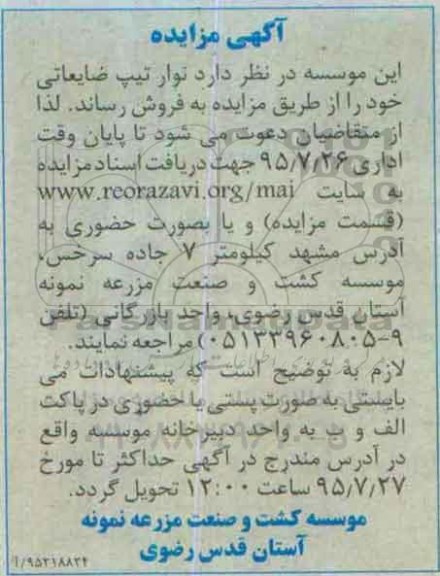 آگهی مزایده
این موسسه در نظر دارد نوار تیپ ضایعاتی
خود را از طریق مزایده به فروش رساند. لذا
از متقاضیان دعوت می شود تا پایان وقت
اداری ۹۵/۷/۲۶ جهت دریافت اسناد مزایده
به سایت www.reorazavi.org/mai
(قسمت مزایده) و یا بصورت حضوری به
آدرس مشهد کیلومتر ۷ جاده سرخس،
موسسه کشت و صنعت مزرعه نمونه
آستان قدس رضوی، واحد بازرگانی (تلفن
۹-۰۵۱۳۳۹۶۰۸۰۵) مراجعه نمایند.
لازم به توضیح است که پیشنهادات می
بایستی به صورت پستی یا حضوری در پاکت
الف و ب به واحد دبیرخانه موسسه واقع
در آدرس مندرج در آگهی حداکثر تا مورخ
۹۵/۷/۲۷ ساعت ۱۲:۰۰ تحویل گردد.
موسسه کشت و صنعت مزرعه نمونه
آستان قدس رضوی
۹۵۲۱۸۸۲۴/آ